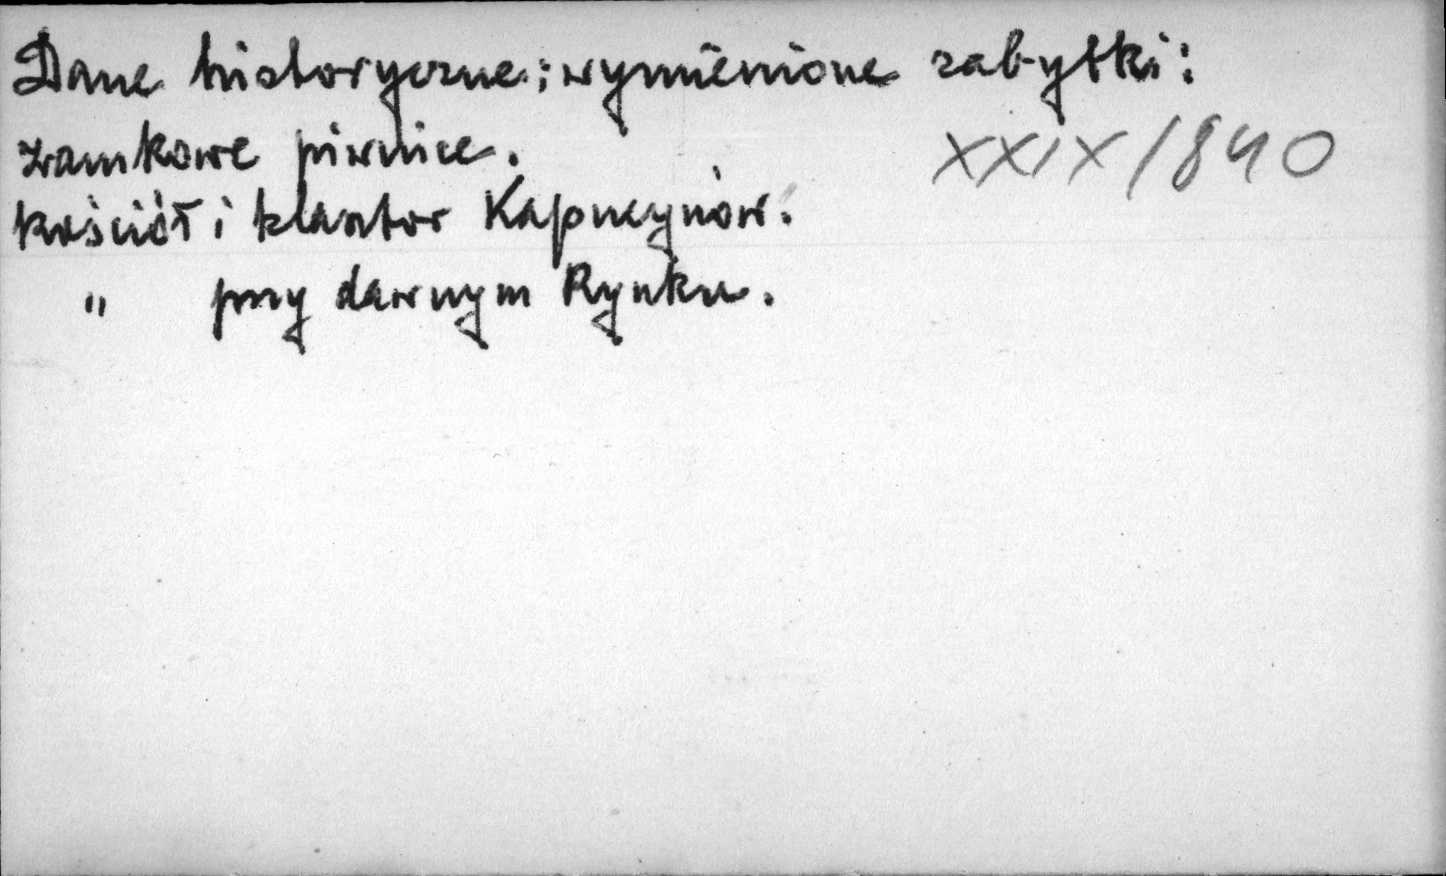 Dane historyczne; wymienione zabytki:
zamkowe piwnice.
XXIX/840
kościół i klasztor Kapucynów.
" przy dawnym Rynku.